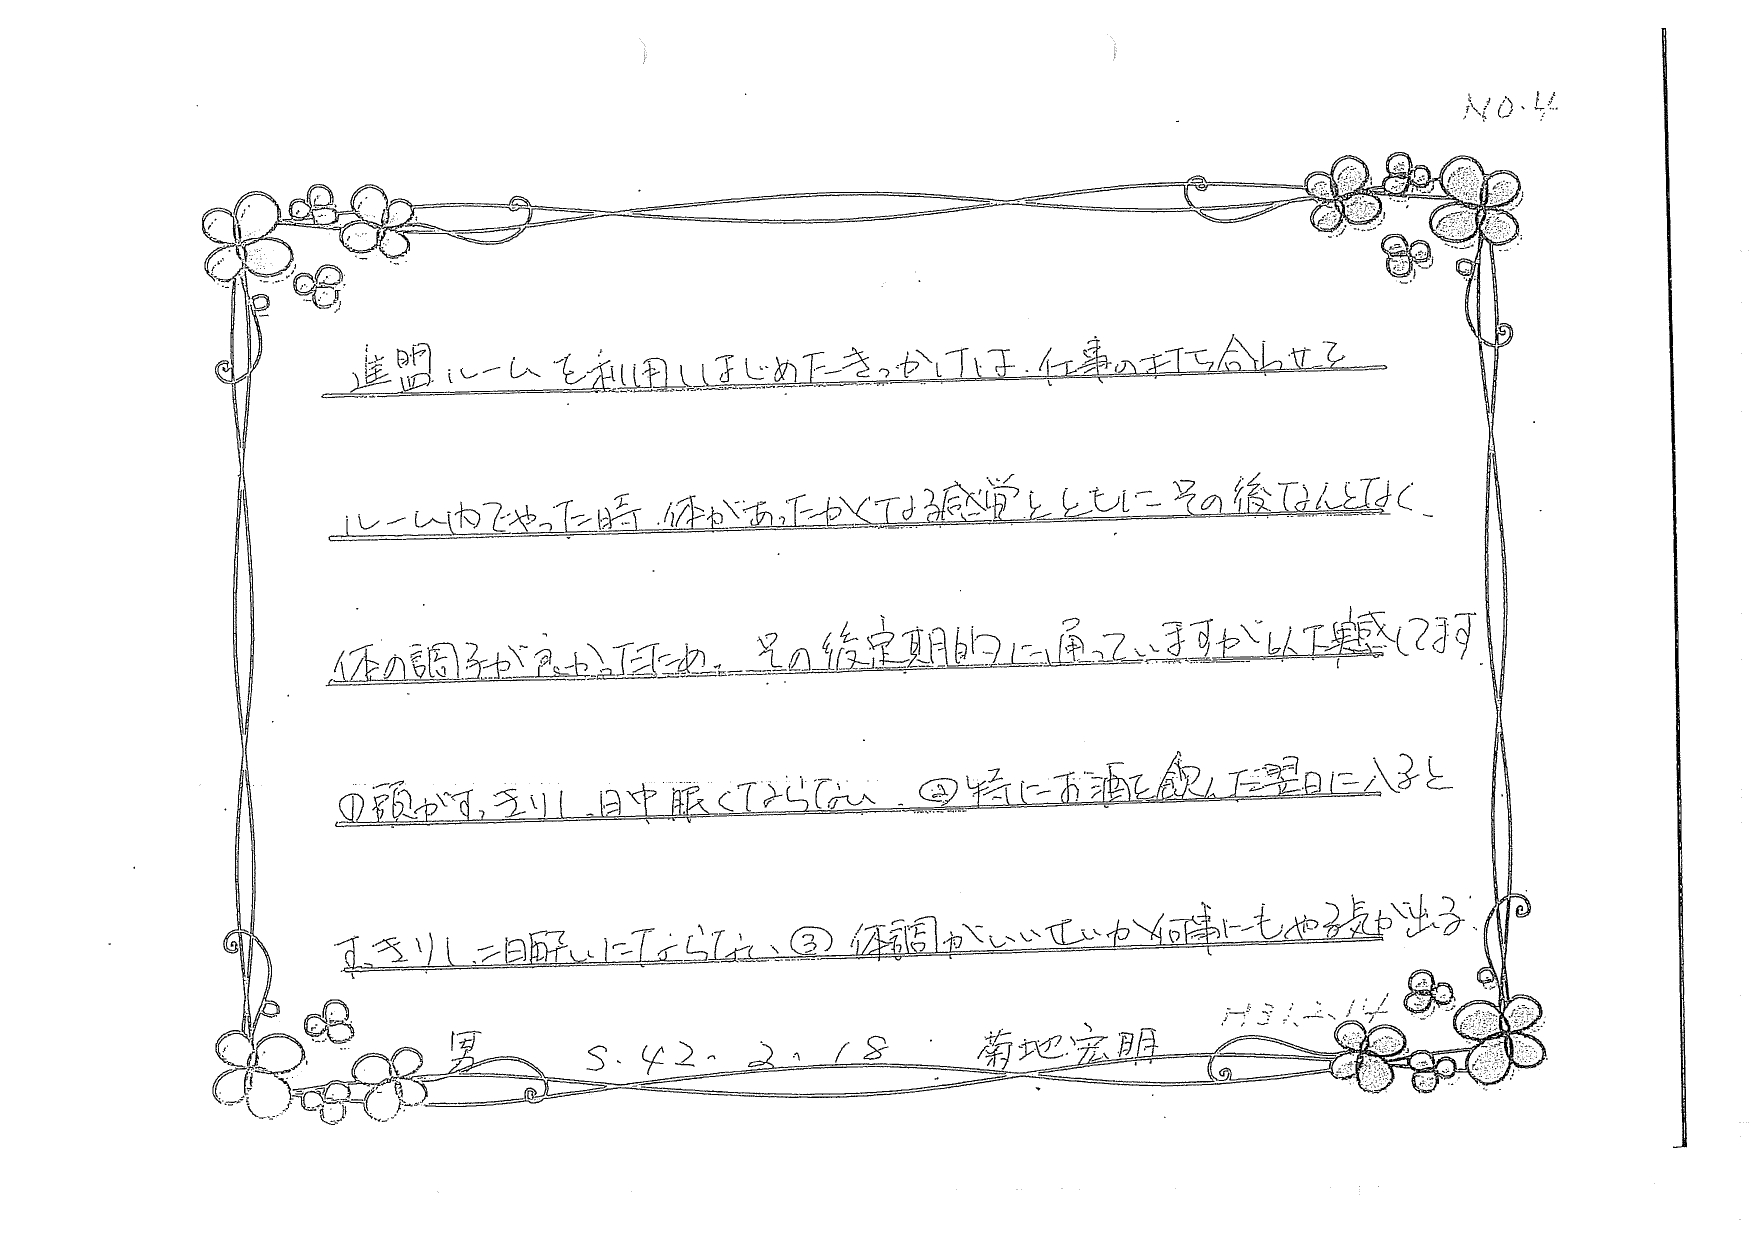 NO.4
進盟ルームを利用しはじめたきっかけは、仕事の打ち合わせを
ルーム内でやった時、体があったかくなる感覚とともにその後なんとなく、
体の調子が良かったため。その後定期的に通っていますが以下実感してます
①頭がすっきりし、日中眠くてならない、②特にお酒を飲んだ翌日に入ると
すっきりし、二日酔いにならない、③体調がいいせいか何事にもやる気が出る。
H31.2.14
男 S.42.2.18 菊地宏明